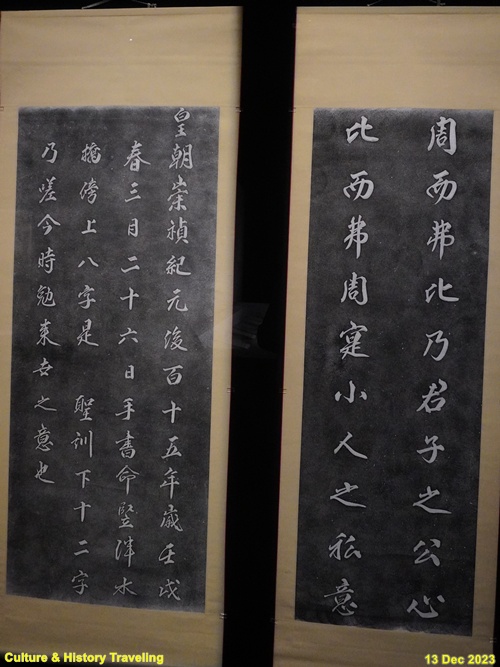 周而弗比乃君子之公心
比而弗周寔小人之私意
皇朝崇禎紀元後百十五年歲壬戌
春三月二十六日手書命竪泮水
橋傍上八字是 聖訓下十二字
乃嗟今時勉來世之意也
Culture & History Traveling
13 Dec 2023